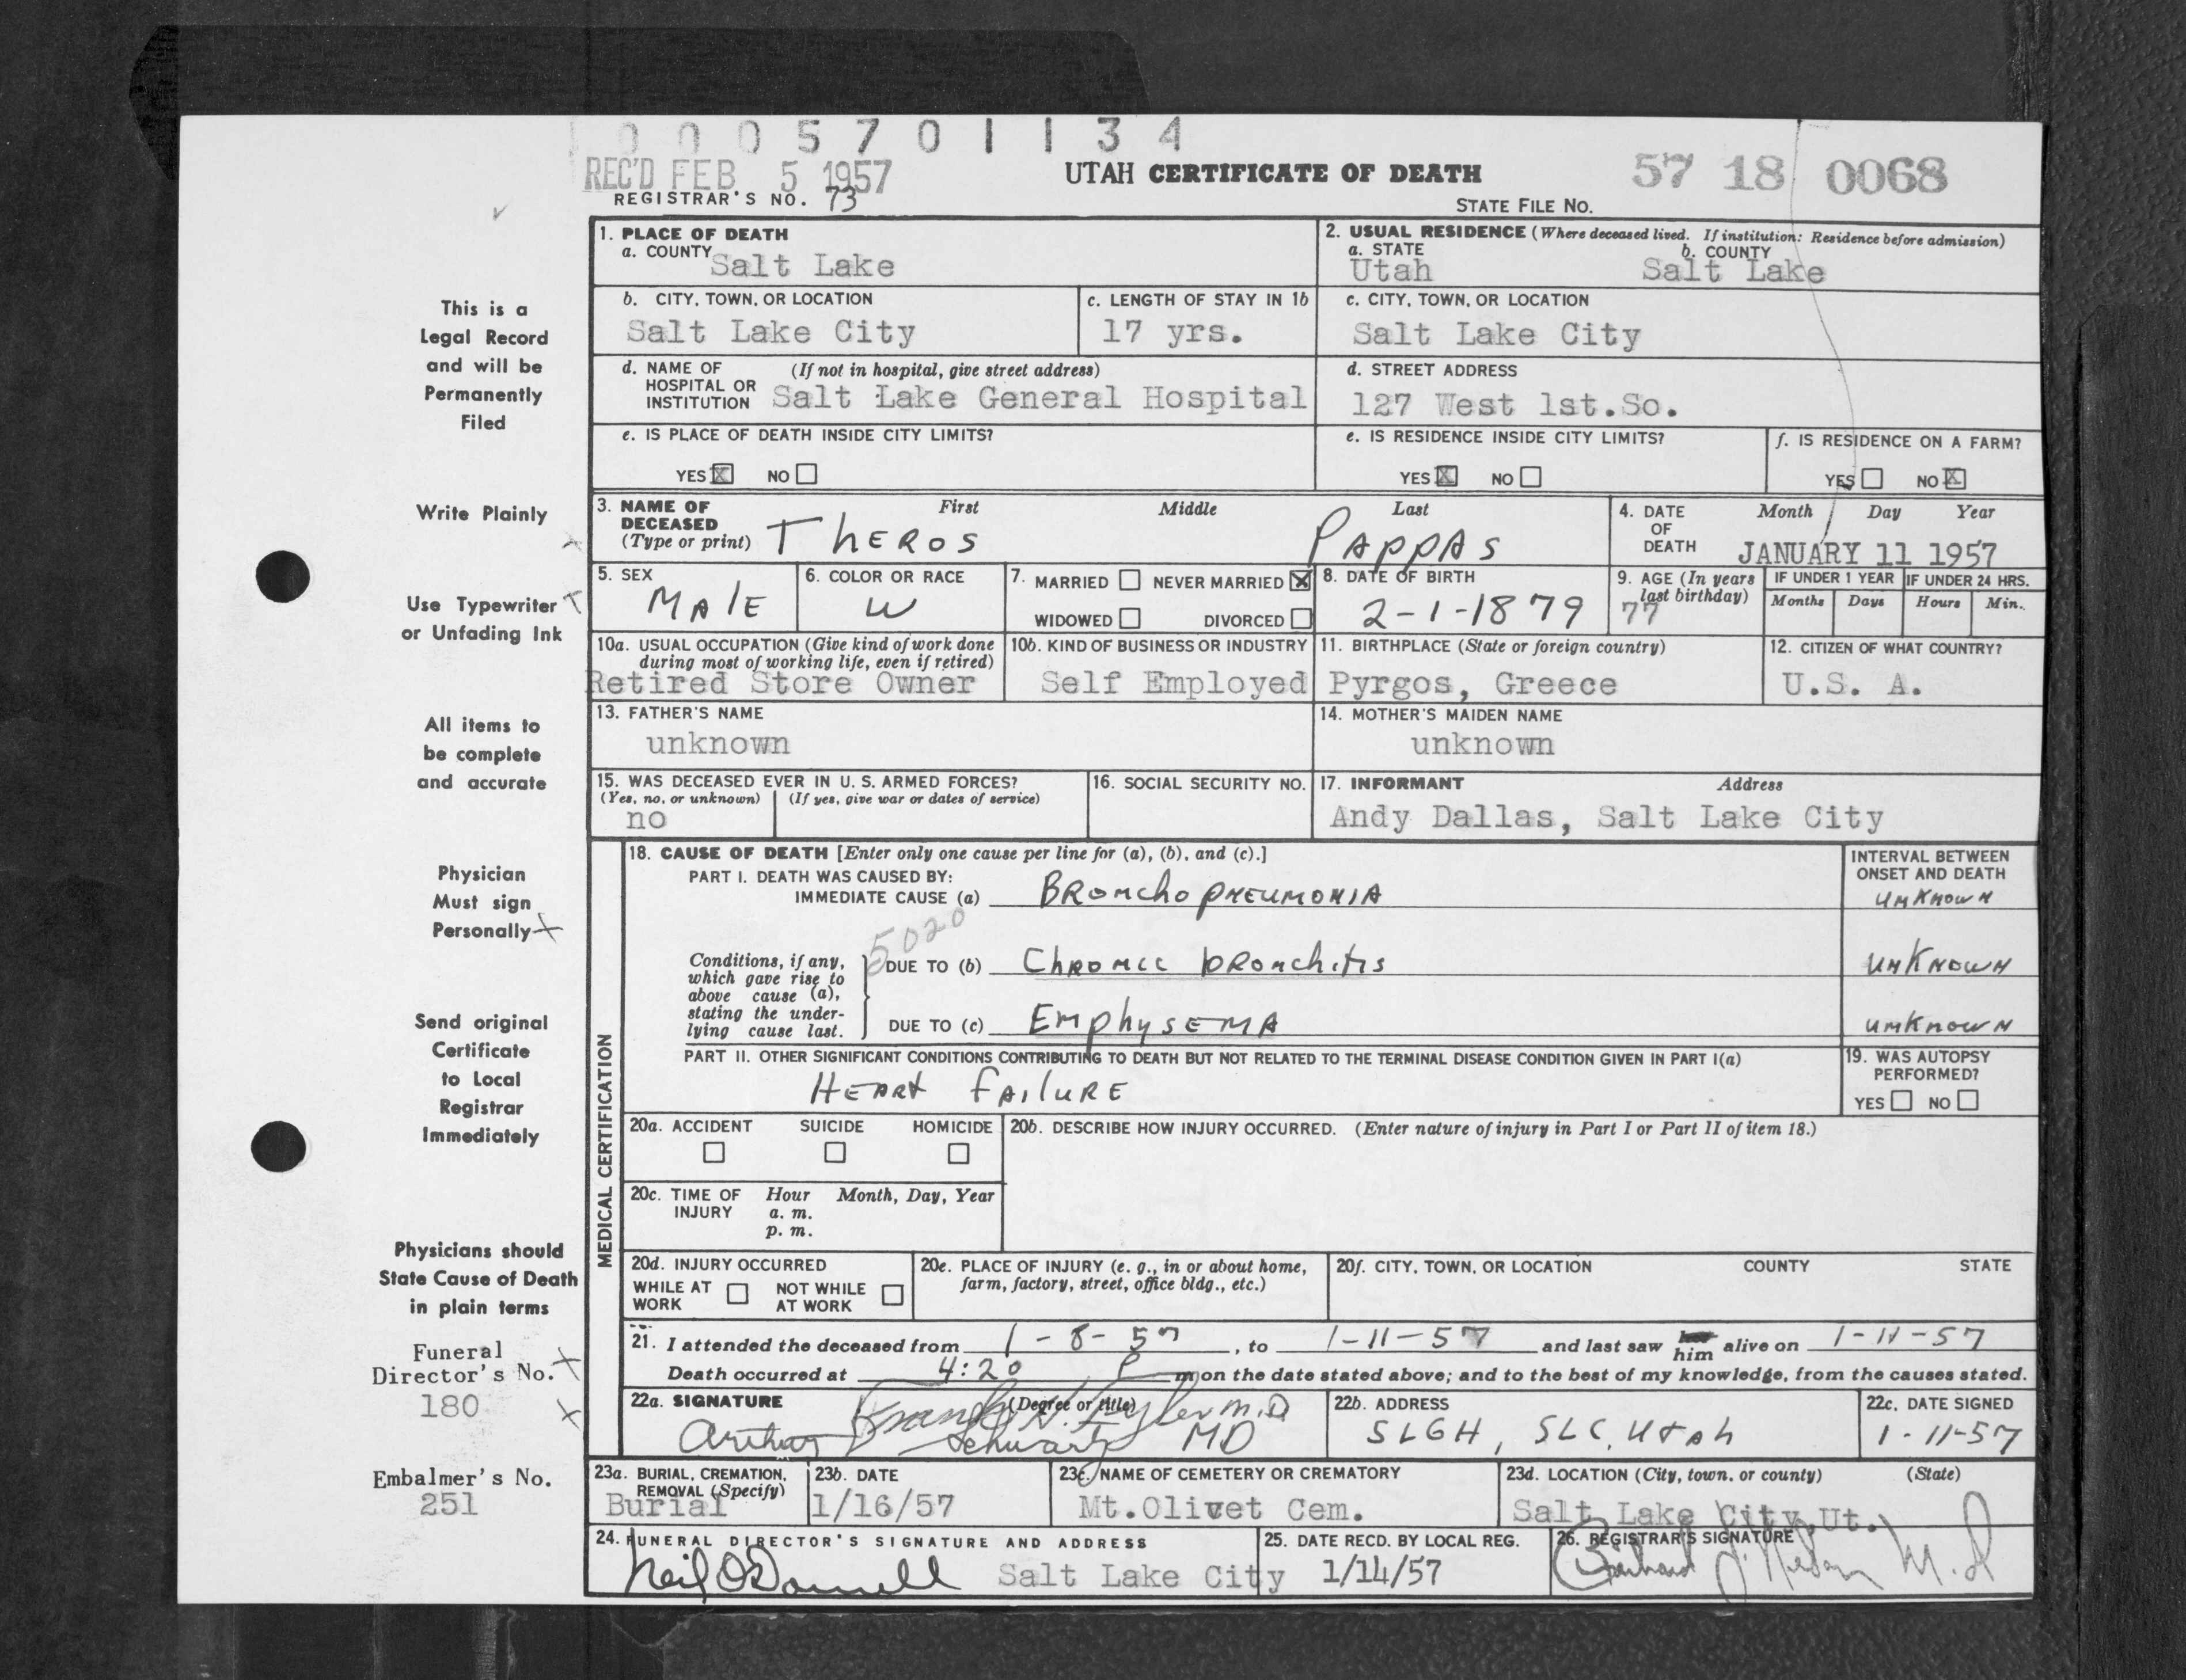 0 0 0 5 7 0 1 1 3 4
REC'D FEB 5 1957
UTAH CERTIFICATE OF DEATH
57 18 0068
REGISTRAR'S NO. 73
STATE FILE NO.
1. PLACE OF DEATH
a. COUNTY Salt Lake
2. USUAL RESIDENCE (Where deceased lived. If institution: Residence before admission)
a. STATE Utah b. COUNTY Salt Lake
b. CITY, TOWN, OR LOCATION
Salt Lake City
c. LENGTH OF STAY IN 1b
17 yrs.
c. CITY, TOWN, OR LOCATION
Salt Lake City
d. NAME OF HOSPITAL OR INSTITUTION (If not in hospital, give street address)
Salt Lake General Hospital
d. STREET ADDRESS
127 West 1st.So.
e. IS PLACE OF DEATH INSIDE CITY LIMITS?
YES X NO
e. IS RESIDENCE INSIDE CITY LIMITS?
YES X NO
f. IS RESIDENCE ON A FARM?
YES NO X
3. NAME OF DECEASED (Type or print) First Middle Last
THEROS PAPPAS
4. DATE OF DEATH Month Day Year
JANUARY 11 1957
5. SEX
MAlE
6. COLOR OR RACE
W
7. MARRIED NEVER MARRIED X
WIDOWED DIVORCED
8. DATE OF BIRTH
2-1-1879
9. AGE (In years last birthday)
77
IF UNDER 1 YEAR IF UNDER 24 HRS.
Months Days Hours Min.
10a. USUAL OCCUPATION (Give kind of work done during most of working life, even if retired)
Retired Store Owner
10b. KIND OF BUSINESS OR INDUSTRY
Self Employed
11. BIRTHPLACE (State or foreign country)
Pyrgos, Greece
12. CITIZEN OF WHAT COUNTRY?
U.S. A.
13. FATHER'S NAME
unknown
14. MOTHER'S MAIDEN NAME
unknown
15. WAS DECEASED EVER IN U. S. ARMED FORCES?
(Yes, no, or unknown) (If yes, give war or dates of service)
no
16. SOCIAL SECURITY NO.
17. INFORMANT Address
Andy Dallas, Salt Lake City
MEDICAL CERTIFICATION
18. CAUSE OF DEATH [Enter only one cause per line for (a), (b), and (c).]
INTERVAL BETWEEN ONSET AND DEATH
PART I. DEATH WAS CAUSED BY:
IMMEDIATE CAUSE (a) BRONchOPNEUMONIA UNKNOWN
5020
Conditions, if any, which gave rise to above cause (a), stating the underlying cause last.
DUE TO (b) ChRONIC bRONchitis UNKNOWN
DUE TO (c) EMPhySEMA UNKNOWN
PART II. OTHER SIGNIFICANT CONDITIONS CONTRIBUTING TO DEATH BUT NOT RELATED TO THE TERMINAL DISEASE CONDITION GIVEN IN PART I(a)
HEARt FAIlURE
19. WAS AUTOPSY PERFORMED?
YES NO
20a. ACCIDENT SUICIDE HOMICIDE
20b. DESCRIBE HOW INJURY OCCURRED. (Enter nature of injury in Part I or Part II of item 18.)
20c. TIME OF INJURY Hour Month, Day, Year
a. m.
p. m.
20d. INJURY OCCURRED
WHILE AT WORK NOT WHILE AT WORK
20e. PLACE OF INJURY (e. g., in or about home, farm, factory, street, office bldg., etc.)
20f. CITY, TOWN, OR LOCATION COUNTY STATE
21. I attended the deceased from 1-8-57, to 1-11-57 and last saw him alive on 1-11-57
Death occurred at 4:20 P m on the date stated above; and to the best of my knowledge, from the causes stated.
22a. SIGNATURE (Degree or title)
M.D.
Arthur Schwartz MD
22b. ADDRESS
SLGH, SLC, Utah
22c. DATE SIGNED
1-11-57
23a. BURIAL, CREMATION, REMOVAL (Specify)
Burial
23b. DATE
1/16/57
23c. NAME OF CEMETERY OR CREMATORY
Mt.Olivet Cem.
23d. LOCATION (City, town, or county) (State)
Salt Lake City,Ut.
24. FUNERAL DIRECTOR'S SIGNATURE AND ADDRESS
Neil O'Donnell Salt Lake City
25. DATE RECD. BY LOCAL REG.
1/14/57
26. REGISTRAR'S SIGNATURE
M.D
This is a
Legal Record
and will be
Permanently
Filed
Write Plainly
Use Typewriter
or Unfading Ink
All items to
be complete
and accurate
Physician
Must sign
Personally
Send original
Certificate
to Local
Registrar
Immediately
Physicians should
State Cause of Death
in plain terms
Funeral
Director's No.
180
Embalmer's No.
251